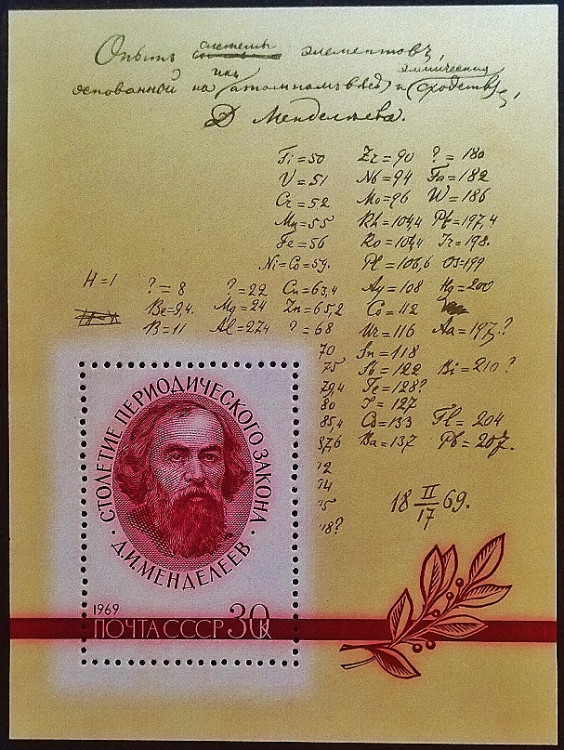 Опытъ системы элементовъ,
основанной на ихъ атомномъ вѣсѣ и химическомъ сходствѣ,
Д Менделѣева.
Ti=50 Zr=90 ?=180
V=51 Nb=94 Ta=182
Cr=52 Mo=96 W=186
Mn=55 Rh=104,4 Pt=197,4
Fe=56 Ro=104,4 Ir=198.
Ni=Co=59. Pl=106,6 Os=199
H=1 ?=8 ?=22 Cu=63,4 Ag=108 Hg=200
Be=9,4. Mg=24 Zn=65,2 Cd=112
B=11 Al=27,4 ?=68 Ur=116 Au=197?
70 Sn=118
75 Sb=122 Bi=210?
79,4 Te=128?
80 I=127
85,4 Cs=133 Tl=204
87,6 Ba=137 Pb=207.
18 II/17 69.
18?
СТОЛЕТИЕ ПЕРИОДИЧЕСКОГО ЗАКОНА
Д.И.МЕНДЕЛЕЕВ
1969
ПОЧТА СССР 30к